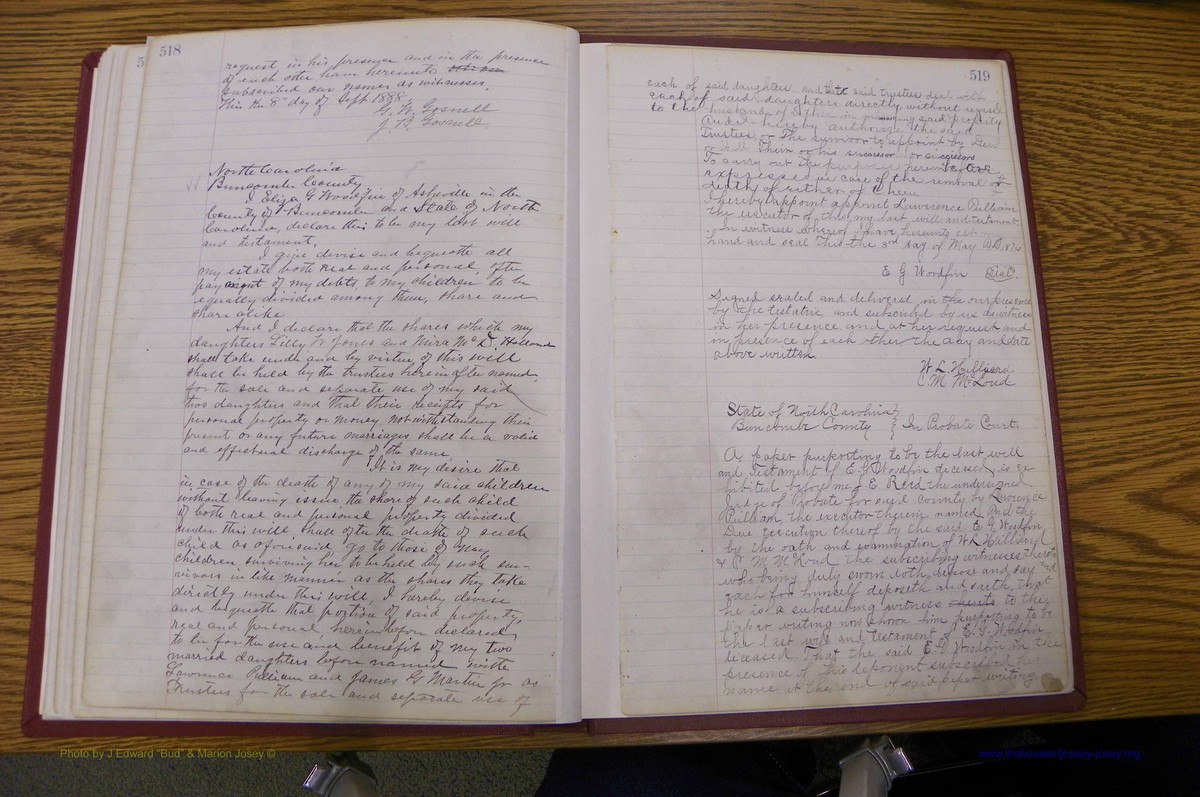 518
request in his presence and in the presence
of each other have hereunto
subscribed our names as witnesses.
This the 8th day of Sept 1878
G. W. Gosnell
J. B. Gosnell
North Carolina
Buncombe County
I Eliza G Woodfin of Asheville in the
County of Buncombe and State of North
Carolina, declare this to be my last will
and testament.
I give devise and bequeathe all
my estate both real and personal, after
payment of my debts, to my children to be
equally divided among them, share and
share alike
And I declare that the shares which my
daughters Lilly W Jones and Mira McD. Holland
shall take under and by virtue of this will
shall be held by the trustees hereinafter named
for the sole and separate use of my said
two daughters and that their receipts for
personal property or money notwithstanding their
present or any future marriages shall be a valid
and effectual discharge of the same.
It is my desire that
in case of the death of any of my said children
without leaving issue the share of such child
of both real and personal property divided
under this will, shall after the death of such
child as aforesaid go to those of my
children surviving her to be held by such sur-
vivors in like manner as the shares they take
directly under this will. I hereby devise
and bequeathe that portion of said property,
real and personal, hereinbefore declared
to be for the use and benefit of my two
married daughters before named with
Lawrence Pulliam and James G Martin Jr as
Trustees for the sole and separate use of
519
each of said daughters and the said trustees deal with
each of said daughters directly without regard
to the husband of either in said property
And I hereby authorize the said
Trustees or the survivor to appoint by Deed
or Will Their or his successor or successors
To carry out the purposes herein
expressed in case of the removal or
death of either of them
I hereby appoint appoint Lawrence Pulliam
the executor of this my last will and testament
In witness whereof I have hereunto set my
hand and seal This the 3rd day of May AD. 1876
E G Woodfin Seal
Signed sealed and delivered in the our presence
by the testatrix and subscribed by us as witness
in her presence and at her request and
in presence of each other the day and date
above written.
W. L. Hilliard
C. M. McLoud
State of North Carolina
Buncombe County } In Probate Court.
A paper purporting to be the last will
and Testament of E. G. Woodfin deceased, is ex-
hibited before me J E. Reid the undersigned
judge of Probate for said county by Lawrence
Pulliam, the executor therein named and the
Due execution thereof by the said E G Woodfin
by the oath and examination of W L Hilliard
& C. M. McLoud the subscribing witnesses thereto
who being duly sworn doth depose and say and
each for himself deposeth and saith, that
he is a subscribing witness to the
paper writing now shown him purporting to be
the last will and testament of E. G. Woodfin
deceased. That the said E. G. Woodfin in the
presence of this deponent subscribed her
name at the end of said paper writing.
Photo by J Edward "Bud" & Marion Josey ©
www.thehouseofjossey-josey.org